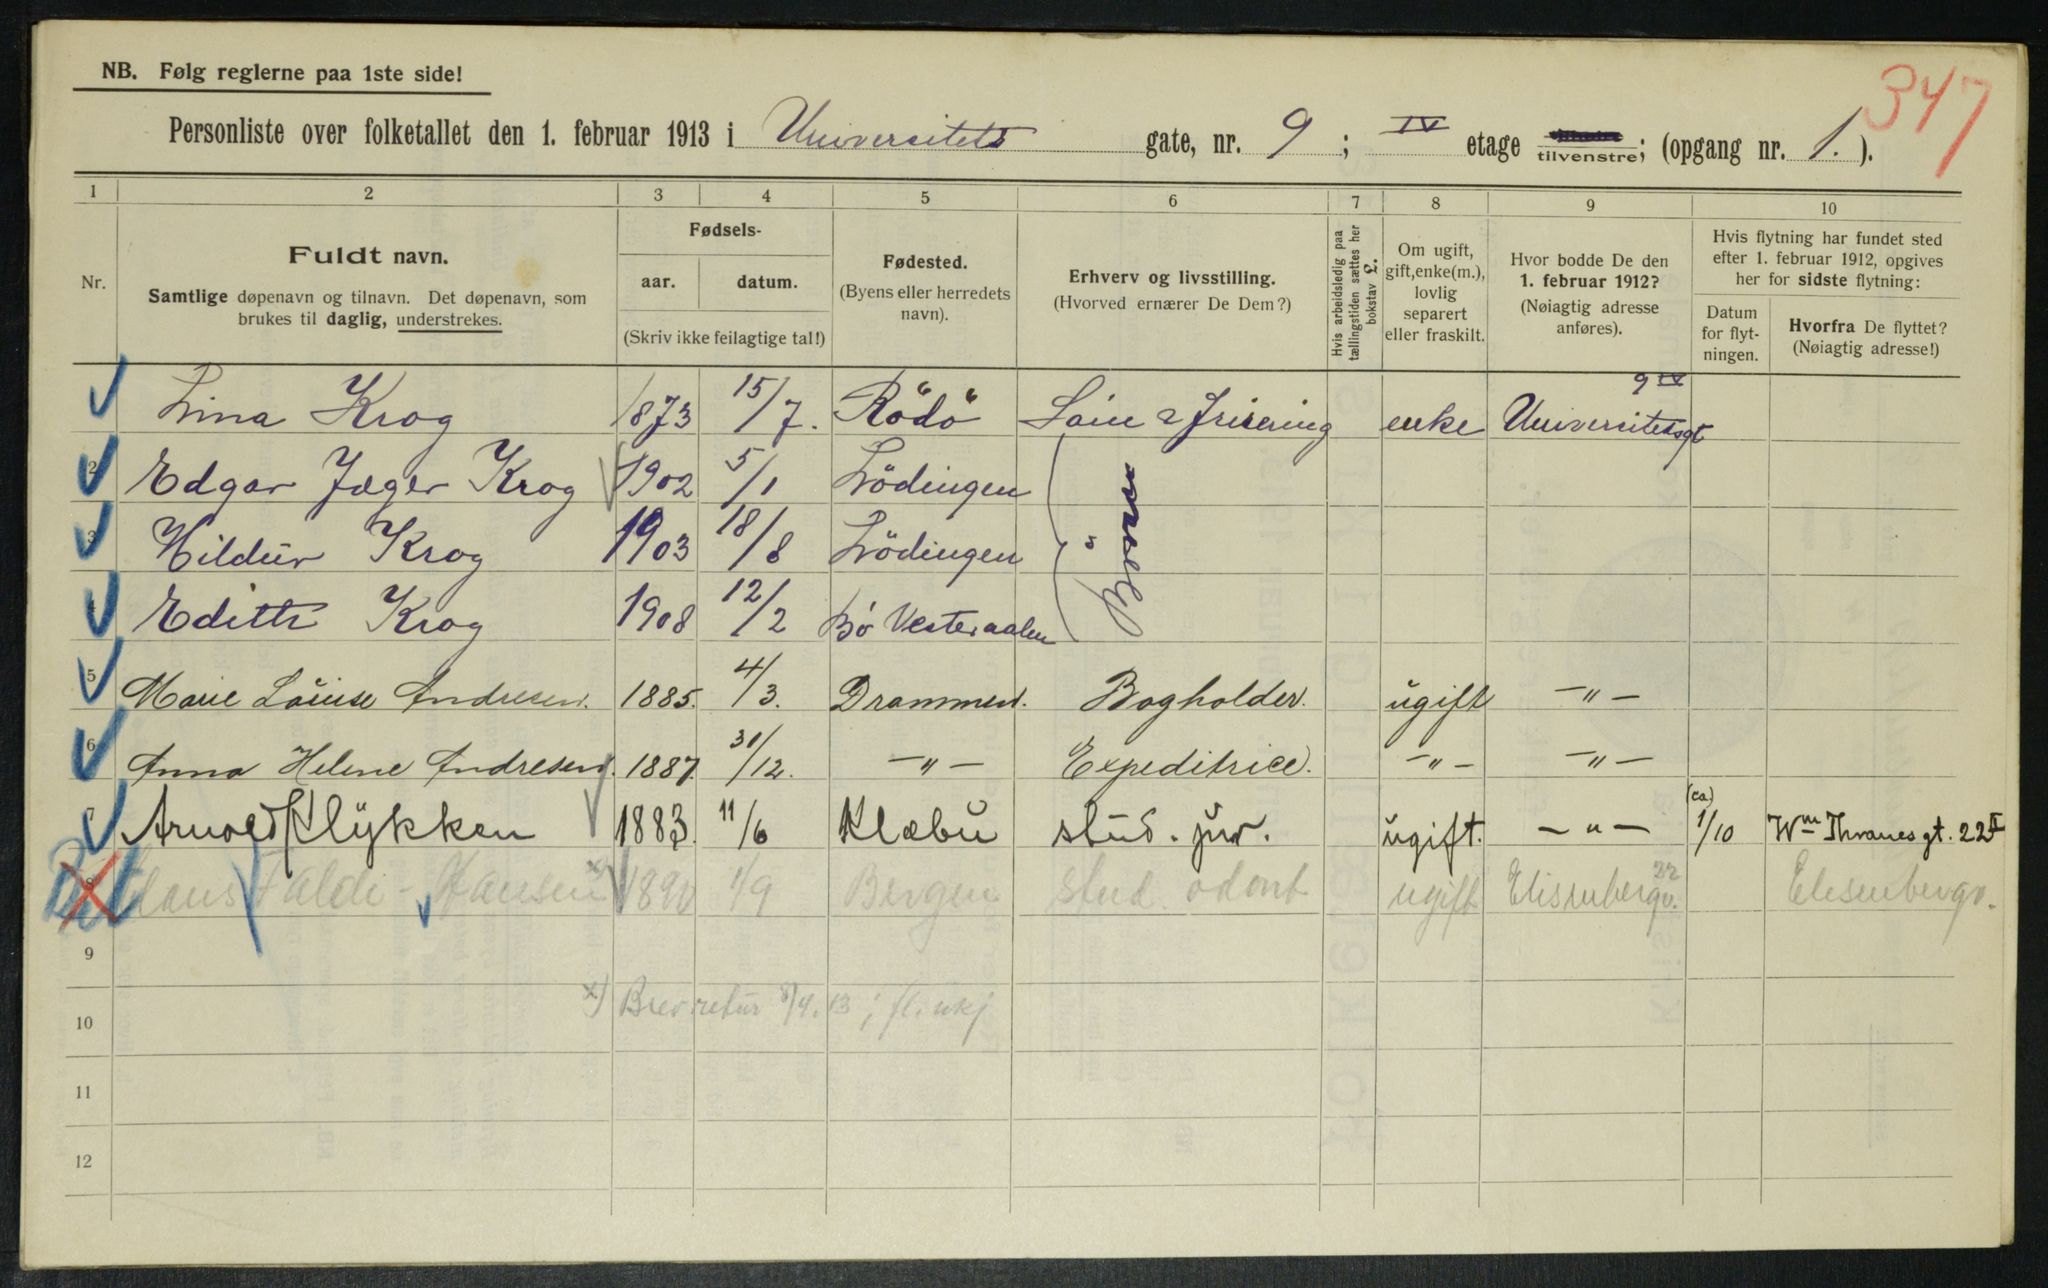 NB. Følg reglerne paa 1ste side!
347
Personliste over folketallet den 1. februar 1913 i Universitets gate, nr. 9 ; IV etage tilvenstre; (opgang nr. 1. ).
1 2 3 4 5 6 7 8 9 10
Nr.
Fuldt navn.
Samtlige døpenavn og tilnavn. Det døpenavn, som
brukes til daglig, understrekes.
Fødsels-
aar. datum.
(Skriv ikke feilagtige tal!)
Fødested.
(Byens eller herredets
navn).
Erhverv og livsstilling.
(Hvorved ernærer De Dem?)
Hvis arbeidsledig paa
tællingstiden sættes her
bokstav L.
Om ugift,
gift, enke(m.),
lovlig
separert
eller fraskilt.
Hvor bodde De den
1. februar 1912?
(Nøiagtig adresse
anføres).
Hvis flytning har fundet sted
efter 1. februar 1912, opgives
her for sidste flytning:
Datum
for flyt-
ningen.
Hvorfra De flyttet?
(Nøiagtig adresse!)
Lina Krog 1873 15/7. Rödö & Frisering enke Universitetsgt 9 IV
2 Edgar Jæger Krog 1902 5/1 Lödingen
3 Hildur Krog 1903 18/8 Lödingen
4 Edith Krog 1908 12/2 Bö Vesteraalen
5 Marie Louise Andresen. 1885. 4/3. Drammen. Bogholder. ugift —„—
6 Anna Helene Andresen. 1887. 31/12. —„— Expeditrice. —„— —„—
7 Arnold Klykken 1883 11/6 Klæbu stud. jur. ugift. —„— (ca) 1/10 Wm Thranesgt. 22 II
8 Hans Falck-Hansen x) 1890 1/9 Bergen stud. odont ugift Elisenbergv. 22 Elisenbergv.
9
x) Brev retur 8/4.13; fl. ukj
10
11
12